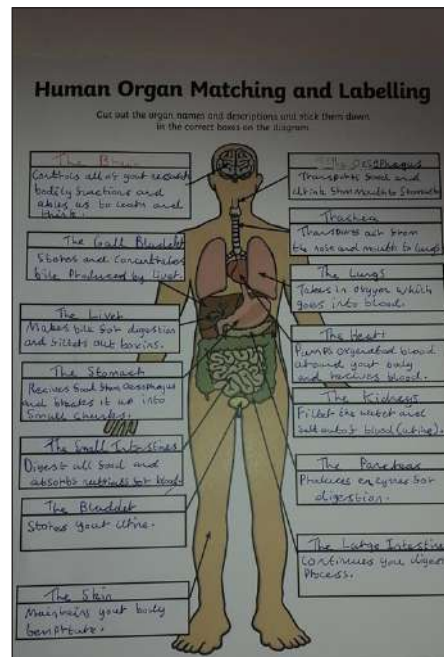 Human Organ Matching and Labelling
Cut out the organ names and descriptions and stick them down
in the correct boxes on the diagram
The Brain
Controls all of your
bodily functions and
ables us to learn and
think.
The Gall Bladder
Stores and concentrates
bile Produced by liver.
The Liver
Makes bile for digestion
and filters out toxins.
The Stomach
Recives food from Oesophagus
and breaks it up into
Small chunks.
The Small Intestines
Digest all food and
absorbs nutrients for blood.
The Bladder
Stores your Urine.
The Skin
Maintains your body
Oesophagus
Transports food and
drink from mouth to Stomach
Trachea
Transports air from
the nose and mouth to lungs
The Lungs
Takes in oxygen which
goes into blood.
The Heart
Pumps oxygenated blood
around your body
and recives blood.
The Kidneys
Filter the water and
Salt out of blood (urine).
The Pancreas
Produces enzymes for
digestion.
The Large Intestine
Continues you diges
Process.